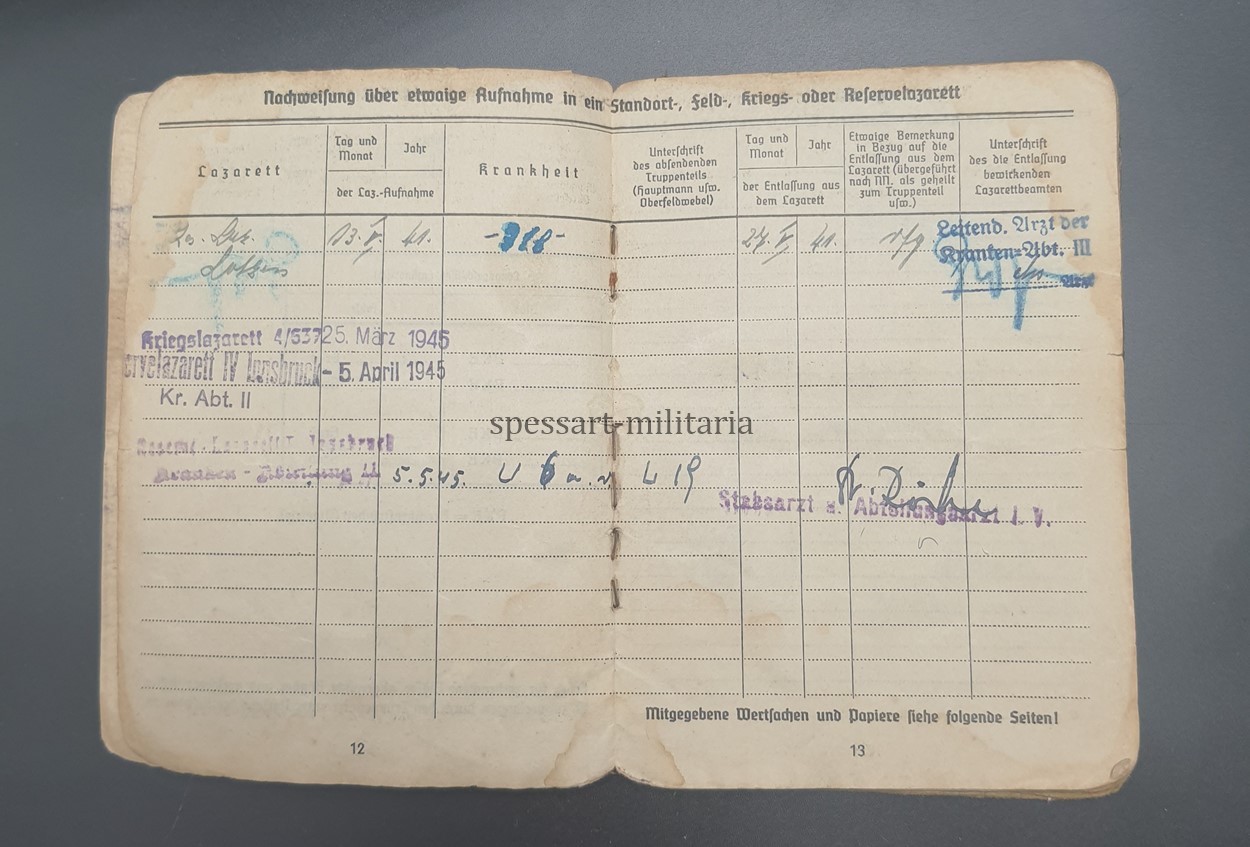 Nachweisung über etwaige Aufnahme in ein Standort-, Feld-, Kriegs- oder Reservelazarett
Lazarett
Tag und
Monat
Jahr
der Laz.-Aufnahme
Krankheit
Unterschrift
des absendenden
Truppenteils
(Hauptmann usw.
Oberfeldwebel)
Tag und
Monat
Jahr
der Entlassung aus
dem Lazarett
Etwaige Bemerkung
in Bezug auf die
Entlassung aus dem
Lazarett (übergeführt
nach NN. als geheilt
zum Truppenteil
usw.)
Unterschrift
des die Entlassung
bewirkenden
Lazarettbeamten
13. V. 41. 27. V. 41.
Leitend. Arzt der
Kranken-Abt. III
Arzt
Kriegslazarett 4/637 25. März 1945
ervelazarett IV Innsbruck - 5. April 1945
Kr. Abt. II
spessart-militaria
Innsbruck
Kranken - Abteilung II 5.5.45.
Stabsarzt u. Abteilungsarzt i. V.
Mitgegebene Wertsachen und Papiere siehe folgende Seiten!
12
13